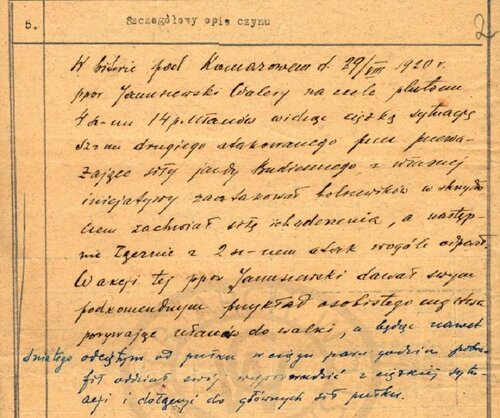 5.
Szczegółowy opis czynu
2
W bitwie pod Komarowem d. 29/VIII 1920 r.
ppor. Januszewski Walery na czele plutonu
4 sz-nu 14 p. ułanów widząc ciężką sytuację
sz-nu drugiego atakowanego przez przewa-
żające siły jazdy Budiennego, z własnej
inicjatywy zaatakował bolszewików w skrzydło
czem zachwiał siłę ich uderzenia, a następ-
nie łącznie z 2 sz-nem atak wrogów odparł.
W akcji tej ppor. Januszewski dawał swym
podkomendnym przykład osobistego męstwa
porywając ułanów do walki, a będąc nawet
odciętym od pułku w ciągu paru godzin potra-
fił oddział swój wyprowadzić z ciężkiej sytu-
acji i dołączyć do głównych sił pułku.